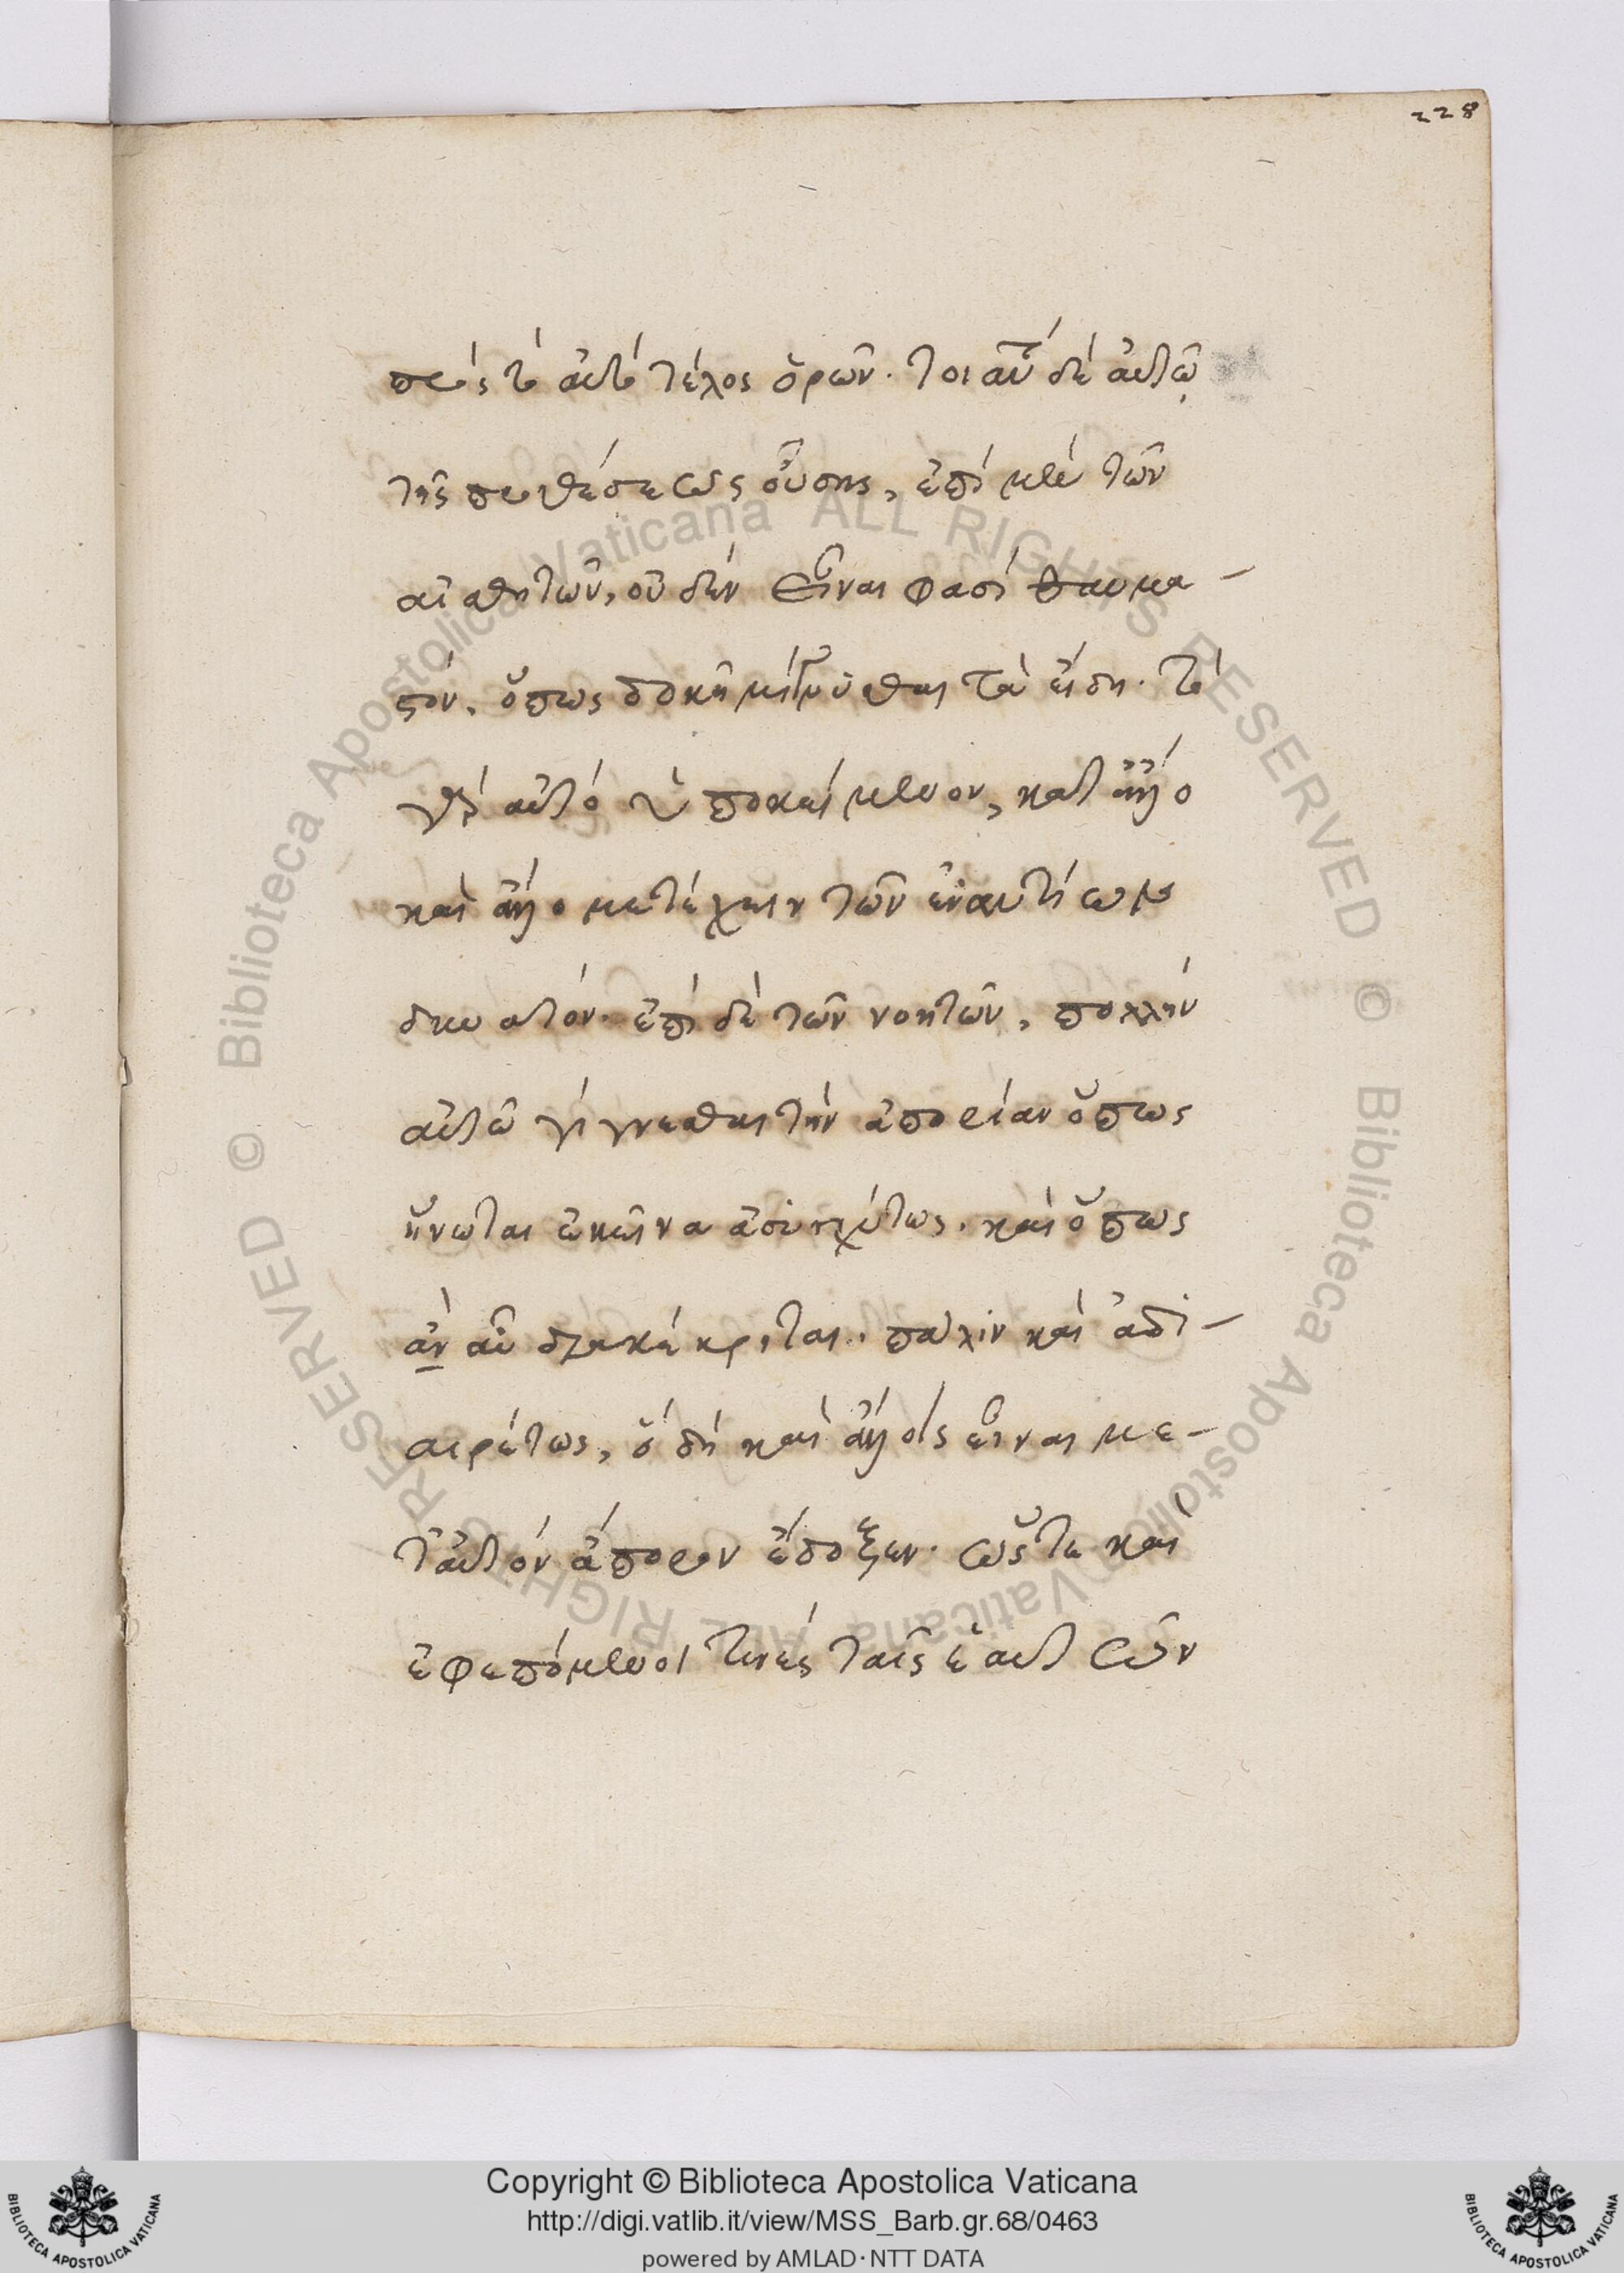 228
πρὸς τὸ αὐτὸ τέλος ὁρῶν. τοιαύτ δὲ αὐτῷ
τῆς προθέσεως οὔσης, ἐπὶ μὲν τῶν
αἰσθητῶν, οὐδὲν εἶναι φασὶ θαυμα-
στόν, ὅπως δοκῇ μίγνυσθαι τὰ εἴδη. τὸ
γὰρ αὐτὸ ὑποκείμενον, κατ ἄλλο
καὶ ἄλλο μετέχειν τῶν ἐναντίων
δυνατόν. ἐπὶ δὲ τῶν νοητῶν, πολλὴν
αὐτῶ γίγνεσθαι τὴν ἀπορίαν ὅπως
ἥνωται ἐκεῖνα ἀσυγχύτως. καὶ ὅπως
ἂν αὖ διακέκριται. πάλιν καὶ ἀδι-
αιρέτως, ὃ δὴ καὶ ἄλλοις εἶναι με-
τ αὐτὸν ἄπορον ἔδοξεν. ὥστε καὶ
ἐφεπόμενοι τινὲς ταῖς ἑαυτῶν
Biblioteca Apostolica Vaticana ALL RIGHTS RESERVED ©
Biblioteca Apostolica Vaticana ALL RIGHTS RESERVED ©
Copyright © Biblioteca Apostolica Vaticana
http://digi.vatlib.it/view/MSS_Barb.gr.68/0463
powered by AMLAD · NTT DATA
BIBLIOTECA APOSTOLICA VATICANA
BIBLIOTECA APOSTOLICA VATICANA